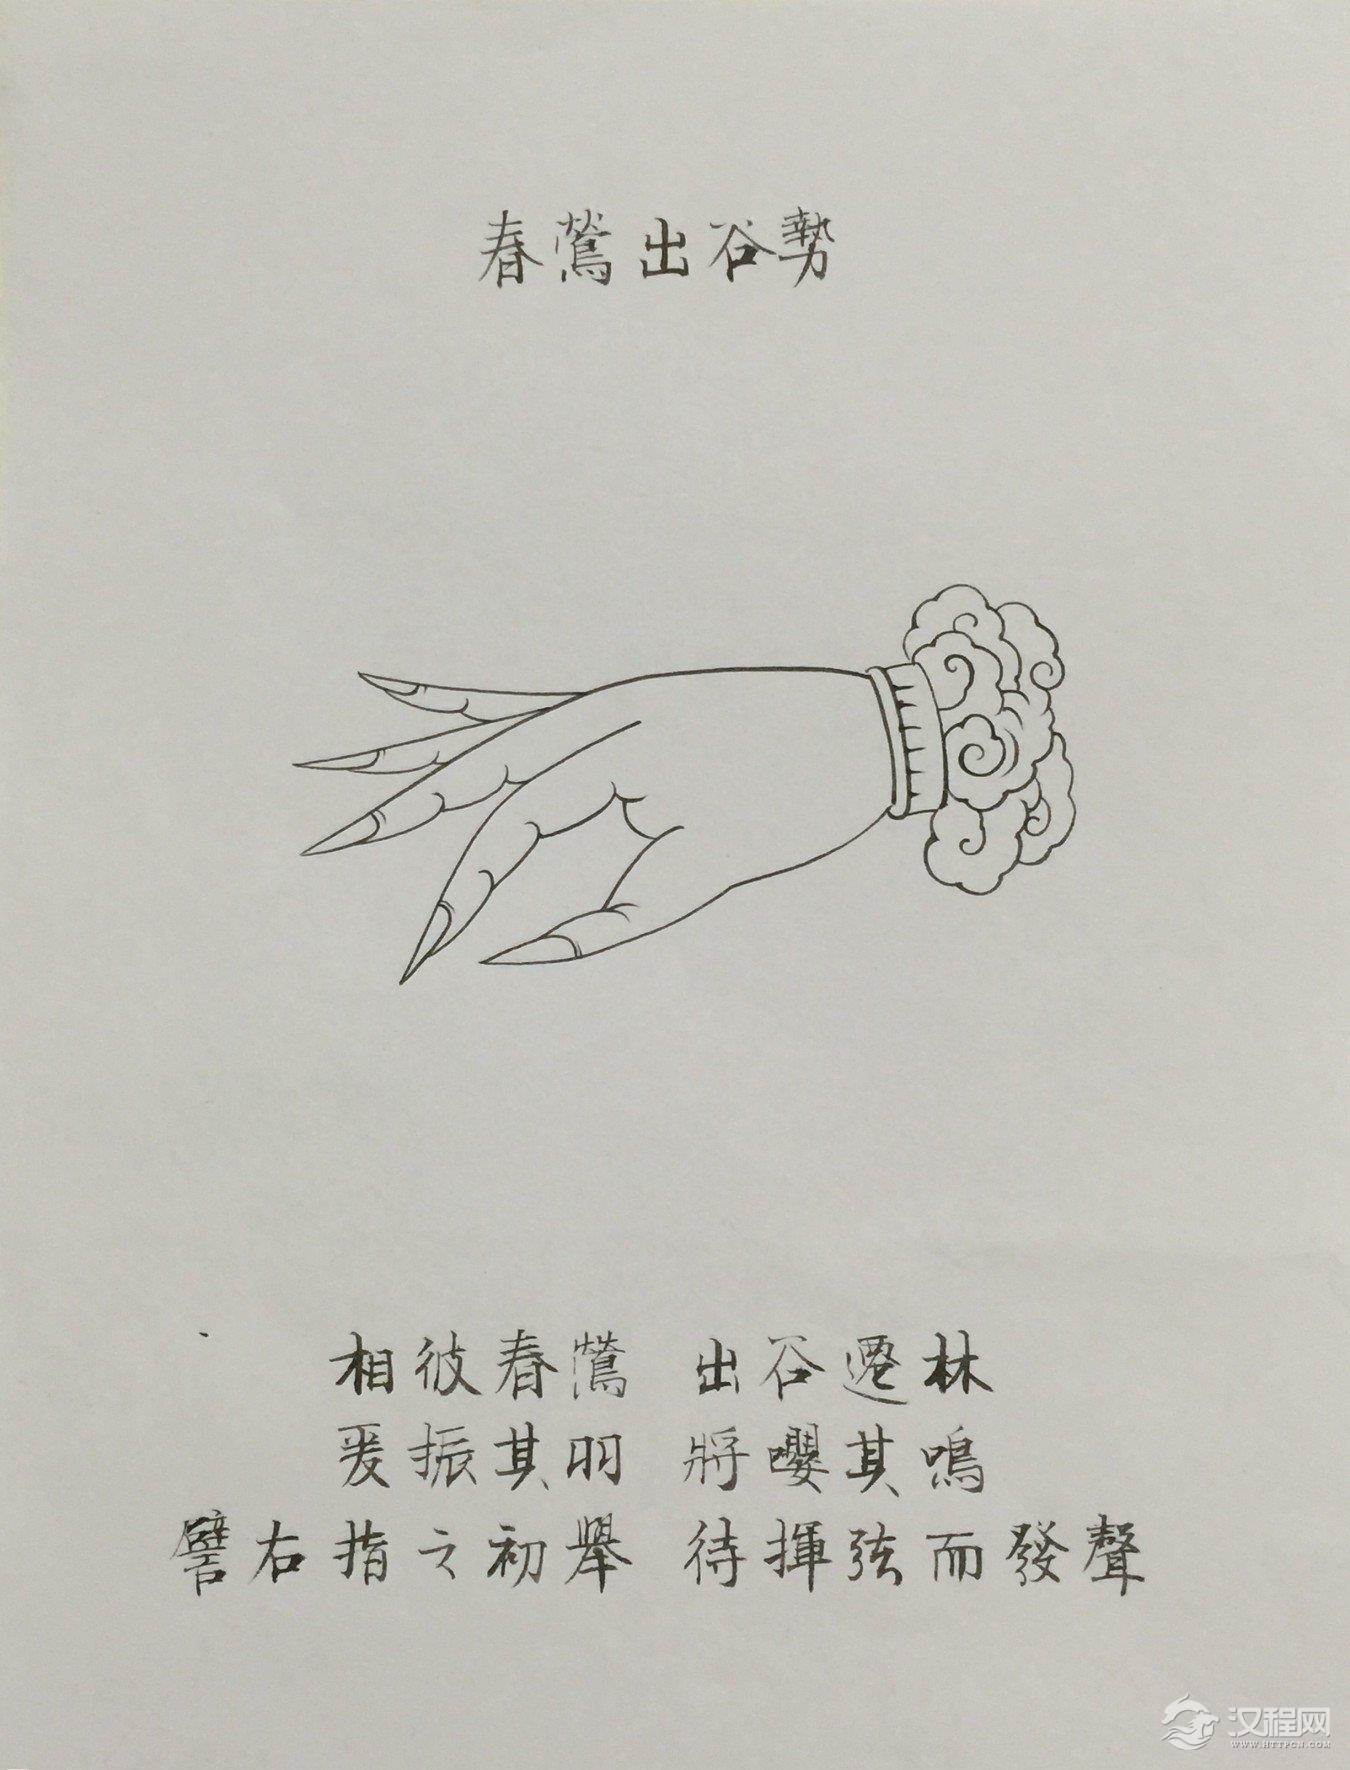 春鶯出谷勢
相彼春鶯 出谷遷林
爰振其羽 將嚶其鳴
譬右指之初舉 待揮弦而發聲
汉程网
WWW.HTTPCN.COM